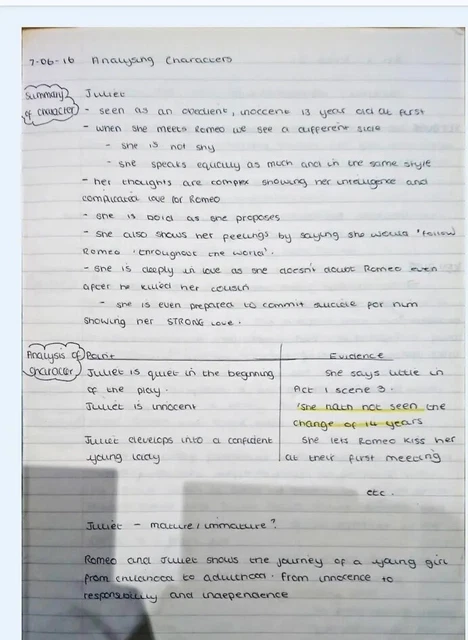 7-06-16 Analysing Characters
Summary of character
Juliet
- seen as an obedient, inoccent 13 year old at first
- when she meets Romeo we see a different side
- she is not shy
- she speaks equally as much and in the same style
- her thoughts are complex showing her intelligence and
complicated love for Romeo
- she is bold as she proposes
- she also shows her feelings by saying she would 'follow
Romeo 'throughout the world'.
- she is deeply in love as she doesn't doubt Romeo even
after he killed her cousin
- she is even prepared to commit suicide for him
showing her STRONG love.
Analysis of character
Point Evidence
Juliet is quiet in the beginning She says little in
of the play. Act 1 scene 3.
Juliet is innocent 'She hath not seen the
change of 14 years
Juliet develops into a confident She lets Romeo kiss her
young lady at their first meeting
etc.
Juliet - mature / immature?
Romeo and Juliet shows the journey of a young girl
from childhood to adulthood. From innocence to
responsibility and independence